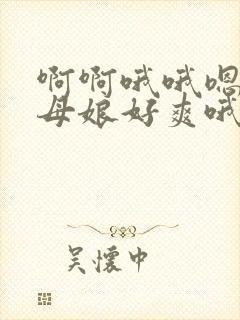 啊啊哦哦嗯
母娘好爽哦
吴怀中